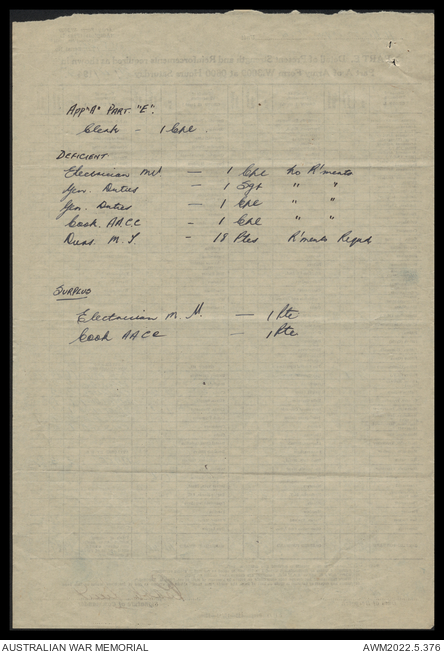 APP "A" PART "E".
Clerk - 1 Cpl.
DEFICIENT
Electrician MV — 1 Cpl no R'ments
Gen. Duties — 1 Sgt " "
Gen. Duties — 1 Cpl " "
Cook. AACC — 1 Cpl " "
Dvrs. M.T - 18 Ptes R'ments Reqd
SURPLUS
Electrician M.V. — 1 Pte
Cook AACC — 1 Pte
AUSTRALIAN WAR MEMORIAL
AWM2022.5.376